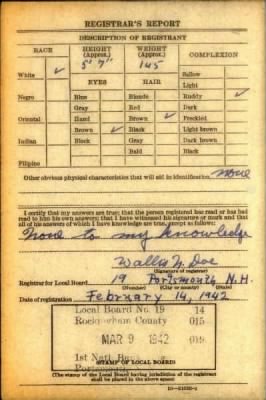 REGISTRAR'S REPORT
DESCRIPTION OF REGISTRANT
RACE HEIGHT (Approx.) WEIGHT (Approx.) COMPLEXION
5' 7" 145
White ✓ Sallow
EYES HAIR Light
Negro Blue Blonde Ruddy ✓
Gray Red Dark
Oriental Hazel Brown ✓ Freckled
Brown ✓ Black Light brown
Indian Black Gray Dark brown
Bald Black
Filipino
Other obvious physical characteristics that will aid in identification none
I certify that my answers are true; that the person registered has read or has
had read to him his own answers; that I have witnessed his signature or mark and that
all of his answers of which I have knowledge are true, except as follows:
none to my knowledge
(Signature of registrar)
Registrar for Local Board 19 Portsmouth, N.H.
(Number) (City or county) (State)
Date of registration February 14, 1942
Local Board No. 19 14
Rockingham County 015
MAR 9 1942 015
1st Natl.
Portsmouth
(STAMP OF LOCAL BOARD)
(The stamp of the Local Board having jurisdiction of the registrant
shall be placed in the above space)